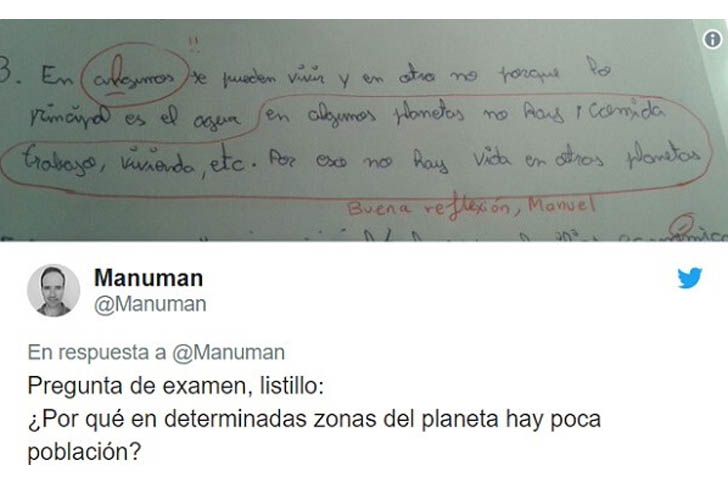 !!
3. En algunos se pueden vivir y en otro no porque lo
principal es el agua en algunos planetas no hay comida
trabajo, vivienda, etc. Por eso no hay vida en otros planetas
Buena reflexión, Manuel
Manuman
@Manuman
En respuesta a @Manuman
Pregunta de examen, listillo:
¿Por qué en determinadas zonas del planeta hay poca
población?